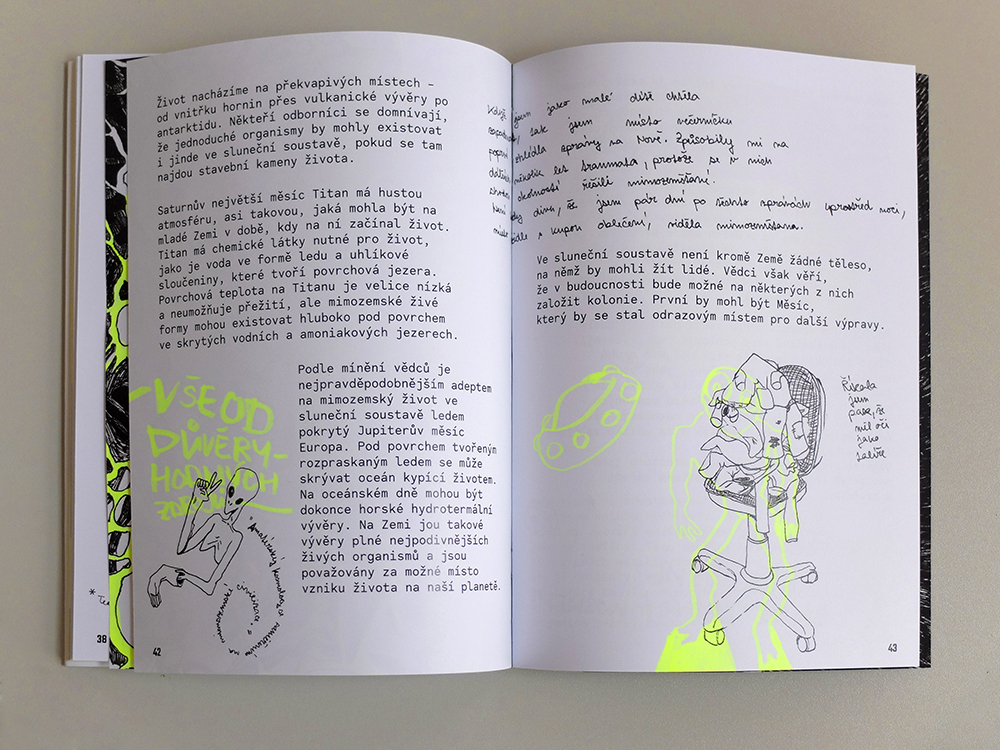 Život nacházíme na překvapivých místech –
od vnitřku hornin přes vulkanické vývěry po
antarktidu. Někteří odborníci se domnívají,
že jednoduché organismy by mohly existovat
i jinde ve sluneční soustavě, pokud se tam
najdou stavební kameny života.
Saturnův největší měsíc Titan má hustou
atmosféru, asi takovou, jaká mohla být na
mladé Zemi v době, kdy na ní začínal život.
Titan má chemické látky nutné pro život,
jako je voda ve formě ledu a uhlíkové
sloučeniny, které tvoří povrchová jezera.
Povrchová teplota na Titanu je velice nízká
a neumožňuje přežití, ale mimozemské živé
formy mohou existovat hluboko pod povrchem
ve skrytých vodních a amoniakových jezerech.
Podle mínění vědců je
nejpravděpodobnějším adeptem
na mimozemský život ve
sluneční soustavě ledem
pokrytý Jupiterův měsíc
Europa. Pod povrchem tvořeným
rozpraskaným ledem se může
skrývat oceán kypící životem.
Na oceánském dně mohou být
dokonce horské hydrotermální
vývěry. Na Zemi jou takové
vývěry plné nejpodivnějších
živých organismů a jsou
považovány za možné místo
vzniku života na naší planetě.
VŠE OD
DŮVĚRY-
HODNÝCH
mimozemské civilizace.
38
42
Když jsem jako malé dítě chtěla
, tak jsem místo večerníčku
zhlédla zprávy na Nově. Způsobily mi na
několik let traumata, protože se v nich
okolností řešili mimozemšťané.
divu, že jsem pár dní po těchto zprávách uprostřed noci,
židle s kupou oblečení, viděla mimozemšťana.
Ve sluneční soustavě není kromě Země žádné těleso,
na němž by mohli žít lidé. Vědci však věří,
že v budoucnosti bude možné na některých z nich
založit kolonie. První by mohl být Měsíc,
který by se stal odrazovým místem pro další výpravy.
Říkala
jsem
pase, že
měl oči
jako
talíře
43